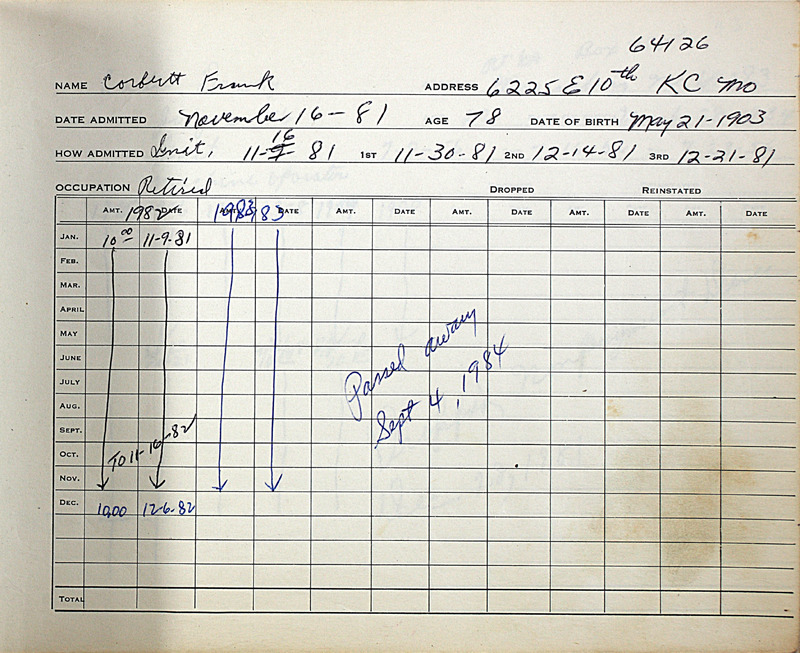 64126
NAME Corbett Frank ADDRESS 6225 E 10th KC Mo
DATE ADMITTED November 16-81 AGE 78 DATE OF BIRTH May 21-1903
HOW ADMITTED Init. 11-16 81 1ST 11-30-81 2ND 12-14-81 3RD 12-21-81
OCCUPATION Retired DROPPED REINSTATED
1982 1983 83
AMT. DATE AMT. DATE AMT. DATE AMT. DATE AMT. DATE AMT. DATE
JAN. 10 00 11-9-81
FEB.
MAR.
APRIL
MAY
JUNE
JULY
AUG.
SEPT.
OCT. TO 11-16-82
NOV.
DEC. 10.00 12-6-82
TOTAL
Passed away
Sept 4, 1984